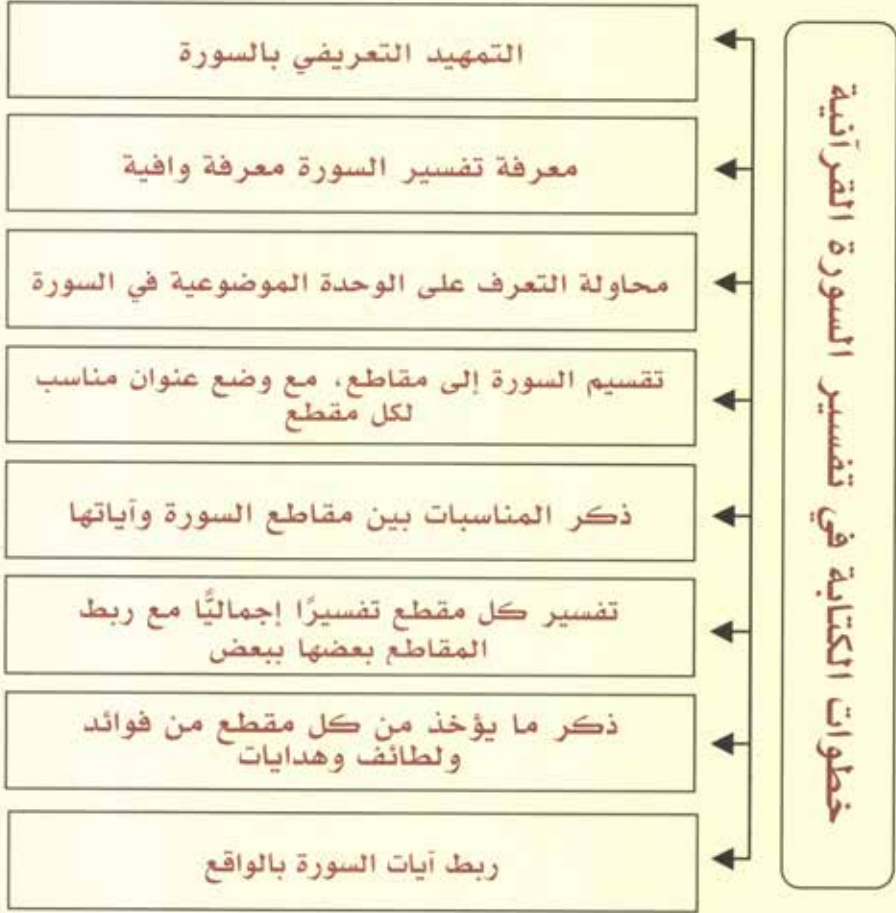 خطوات الكتابة في تفسير السورة القرآنية
التمهيد التعريفي بالسورة
معرفة تفسير السورة معرفة وافية
محاولة التعرف على الوحدة الموضوعية في السورة
تقسيم السورة إلى مقاطع، مع وضع عنوان مناسب
لكل مقطع
ذكر المناسبات بين مقاطع السورة وآياتها
تفسير كل مقطع تفسيرًا إجماليًّا مع ربط
المقاطع بعضها ببعض
ذكر ما يؤخذ من كل مقطع من فوائد
ولطائف وهدايات
ربط آيات السورة بالواقع